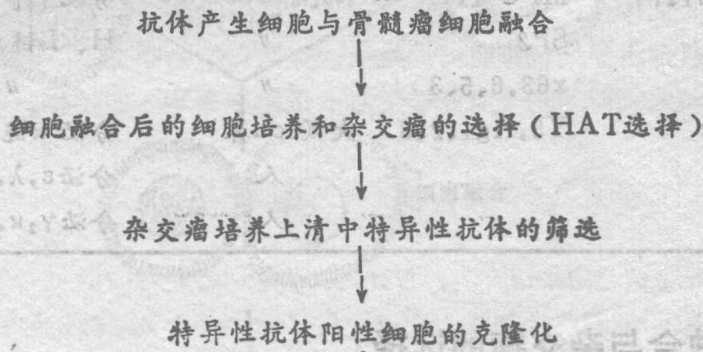 抗体产生细胞与骨髓瘤细胞融合
细胞融合后的细胞培养和杂交瘤的选择(HAT选择)
杂交瘤培养上清中特异性抗体的筛选
特异性抗体阳性细胞的克隆化